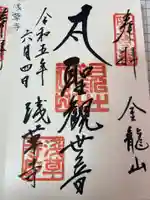 奉拝
金龍山
聖観世音
令和五年
六月四日
淺草寺